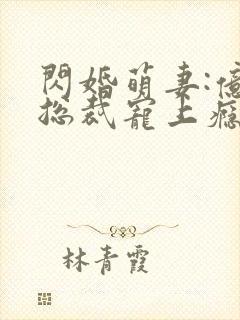 閃婚萌妻:億
総裁寵上癮
林青霞